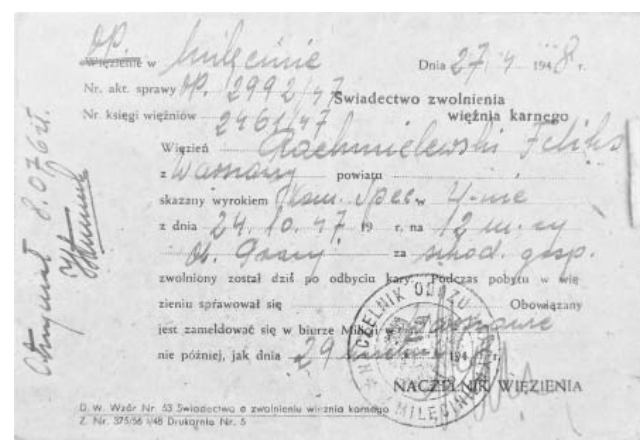 OP.
Więzienie w Milęcinie Dnia 27 4 1948 r.
Nr. akt. sprawy OP. 2992/47
Świadectwo zwolnienia
więźnia karnego
Nr. księgi więźniów 2461/47
Więzień Rachmielewski Feliks
z Warszawy powiatu
skazany wyrokiem Kom. Spec. w W-wie
z dnia 24. 10. 47 19 r. na 12 m-cy
ob. Pracy za szkod. gosp.
zwolniony został dziś po odbyciu kary. Podczas pobytu w wię
zieniu sprawował się Obowiązany
jest zameldować się w biurze Milicji w Warszawie
nie później, jak dnia 29 kwietnia 1948 r.
NACZELNIK WIĘZIENIA
NACZELNIK OBOZU
MILĘCIN
D. W. Wzór Nr. 53 Świadectwo o zwolnieniu więźnia karnego
Z. Nr. 375/56 I/48 Drukarnia Nr. 5
Otrzymał 8.076 zł.